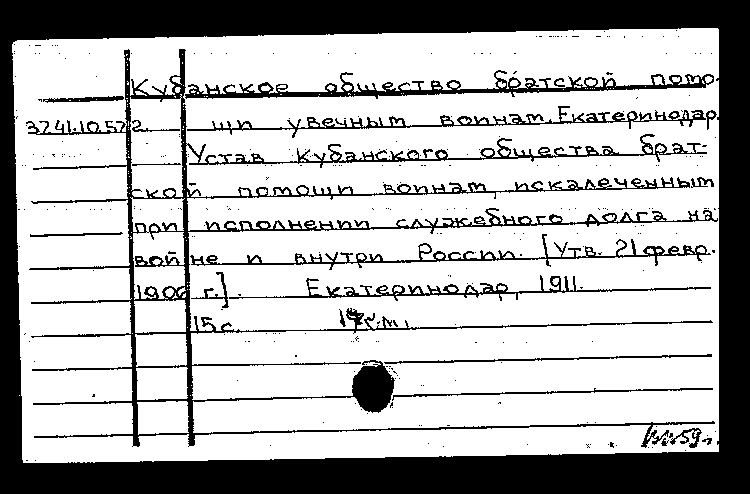 Кубанское общество братской помо-
37.41.10.572 щи увечным воинам. Екатеринодар.
Устав Кубанского общества брат-
ской помощи воинам, искалеченным
при исполнении служебного долга на
войне и внутри России. [Утв. 21 февр.
1906 г.]. Екатеринодар, 1911.
15 с.